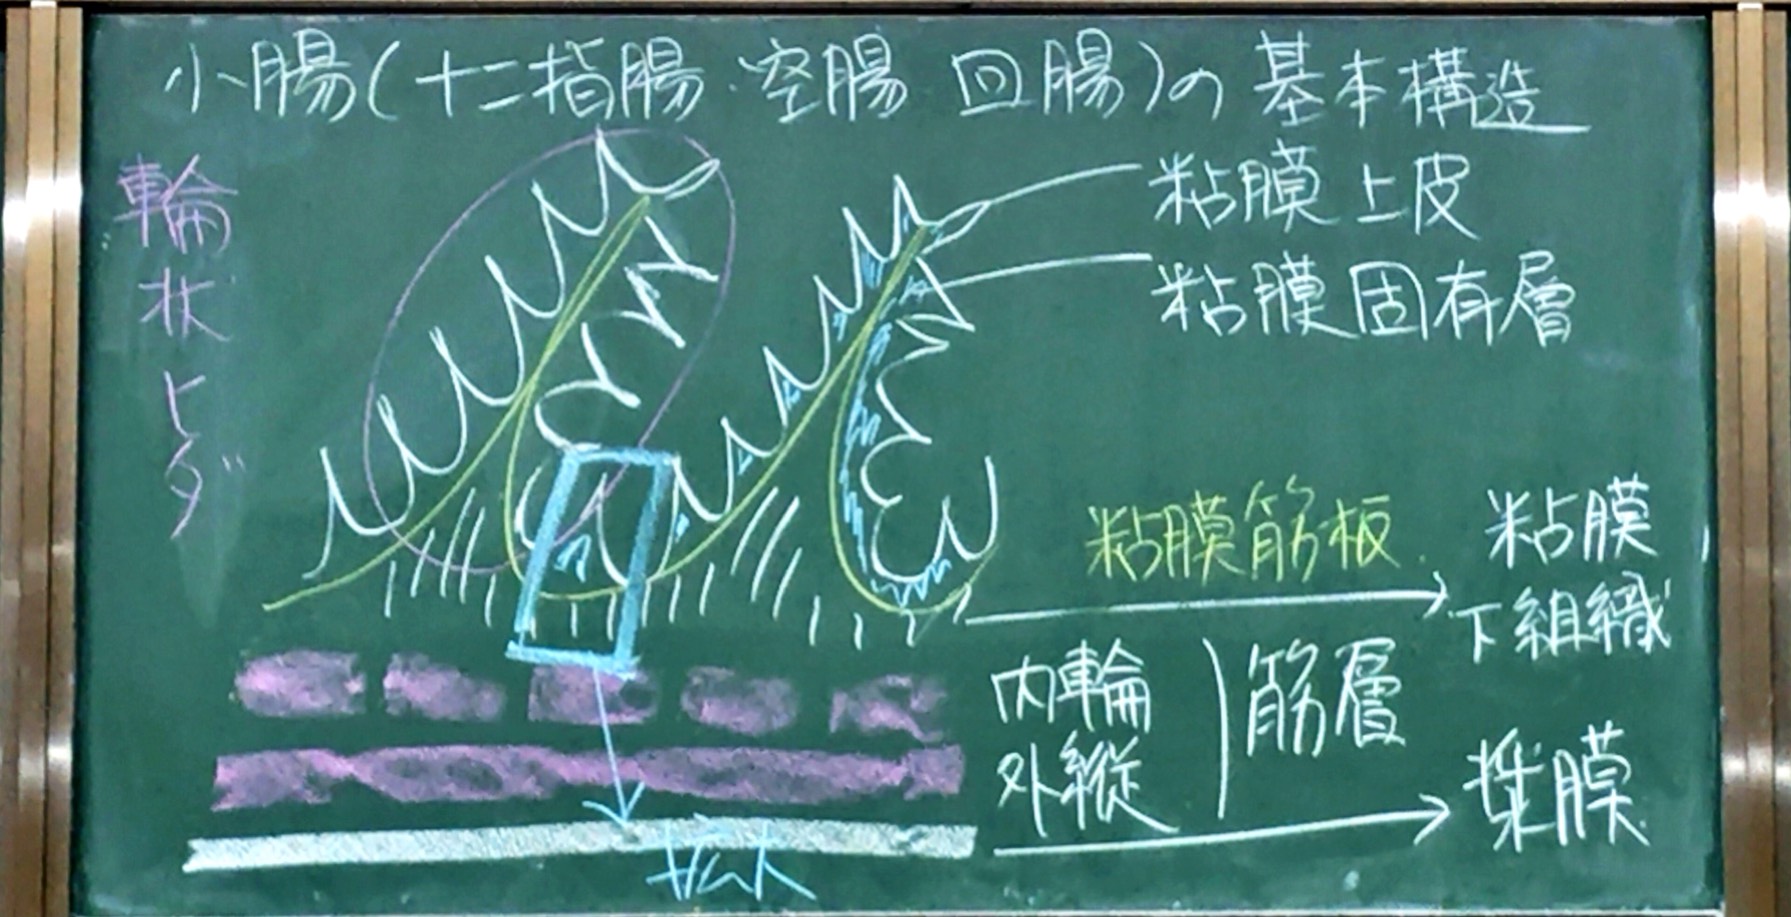 小腸(十二指腸・空腸 回腸)の基本構造
輪状ヒダ
粘膜上皮
粘膜固有層
粘膜筋板
粘膜
下組織
内輪
外縦
筋層
漿膜
拡大